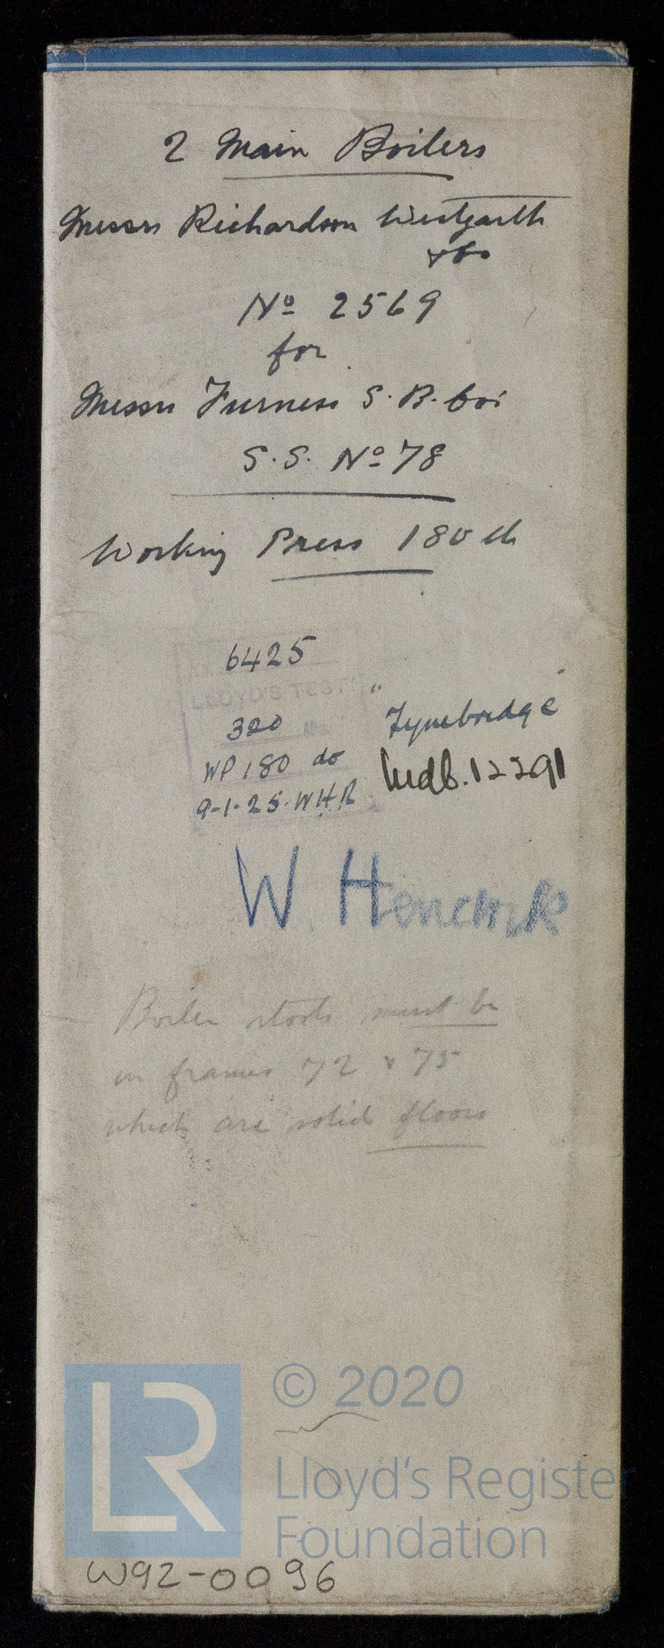 2 Main Boilers
Messrs Richardson Westgarth
& Co
Nº 2569
for
Messrs Furness S.B. Co:
S.S. Nº 78
Working Press 180 lb
6425
LLOYD'S TEST
320
"Tynebridge"
WP 180 do
Mdb. 12291
9-1-25. WHR
W.
Boiler stools must be
on frames 72 & 75
which are solid floors
LR
© 2020
Lloyd's Register
Foundation
W92-0096